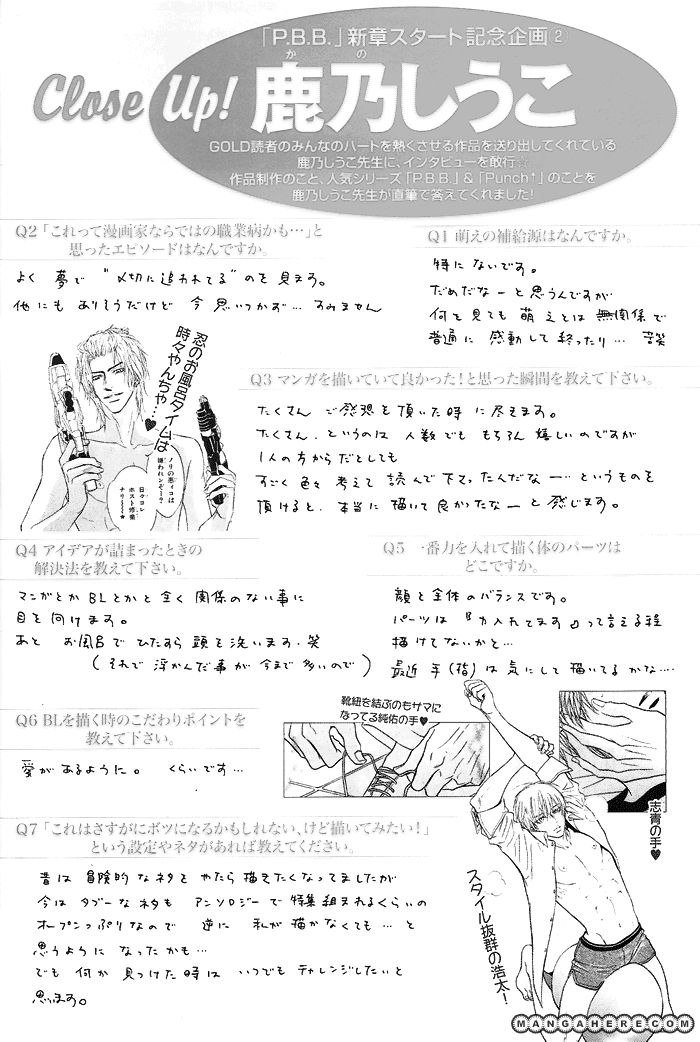 「P.B.B.」新章スタート記念企画②
Close Up!
かのしうこ
鹿乃しうこ
GOLD読者のみんなのハートを熱くさせる作品を送り出してくれている
鹿乃しうこ先生に、インタビューを敢行☆
作品制作のこと、人気シリーズ「P.B.B.」&「Punch↑」のことを
鹿乃しうこ先生が直筆で答えてくれました!
Q1 萌えの補給源はなんですか。
特にないです。
だめだなーと思うんですが
何を見ても萌えとは無関係で
普通に感動して終ったり… 苦笑
Q2「これって漫画家ならではの職業病かも…」と
思ったエピソードはなんですか。
よく夢で "〆切に追われてる" のを見ます。
他にもありそうだけど 今思いつかず… すみません
忍のお風呂タイムは
時々やんちゃ…♥
Q3 マンガを描いていて良かった!と思った瞬間を教えて下さい。
たくさん ご感想を頂いた時に尽きます。
たくさん、というのは 人数でも もちろん嬉しいのですが
1人の方からだとしても
すごく色々考えて 読んで下さったんだなー…というものを
頂けると、本当に描いて良かったなーと感じます。
Q4 アイデアが詰まったときの
解決法を教えて下さい。
マンガとかBLとかと全く関係のない事に
目を向けます。
あと お風呂でひたすら頭を洗います.笑
(それで浮かんだ事が今まで多いので)
Q5 一番力を入れて描く体のパーツは
どこですか。
顔と全体のバランスです。
パーツは『力入れてます』って言える程
描けてないかと…
最近 手(指)は気にして描いてるかな…。
靴紐を結ぶのもサマに
なってる純佑の手♥
志青の手♥
Q6 BLを描く時のこだわりポイントを
教えて下さい。
愛があるように。 くらいです…
Q7「これはさすがにボツになるかもしれない、けど描いてみたい!」
という設定やネタがあれば教えてください。
昔は冒険的なネタをやたら描きたくなってましたが
今はタブーなネタも アンソロジーで特集組まれるくらいの
オープンっぷりなので 逆に 私が描かなくても…と
思うようになったかも…
でも何か見つけた時は いつでもチャレンジしたいと
思います。
スタイル抜群の浩太!
MANGAHERE.COM